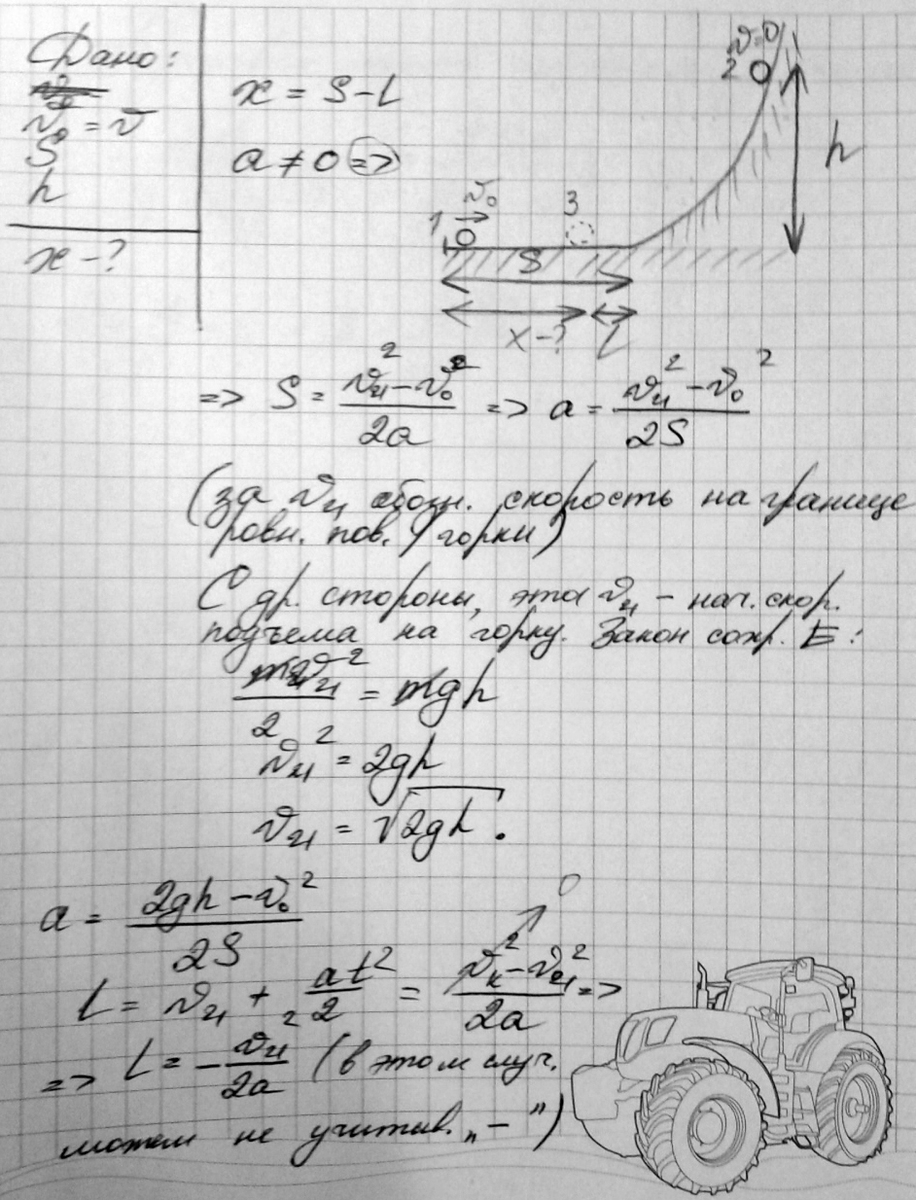 Дано:
v₀ = v
S
h
x - ?
x = S - L
a ≠ 0 =>
v=0
2
h
v₀
1
3
S
x - ?
L
=> S = (vᵤ² - v₀²) / 2a => a = (vᵤ² - v₀²) / 2S
(за vᵤ обозн. скорость на границе
ровн. пов. / горки)
С др. стороны, эта vᵤ - нач. скор.
подъема на горку. Закон сохр. E:
mvᵤ² / 2 = mgh
vᵤ² = 2gh
vᵤ = √2gh.
a = (2gh - v₀²) / 2S
0
L = vᵤ + at² / 2 = (vₖ² - vᵤ²) / 2a =>
=> L = - vᵤ / 2a (в этом случ.
можем не учитыв. „-")